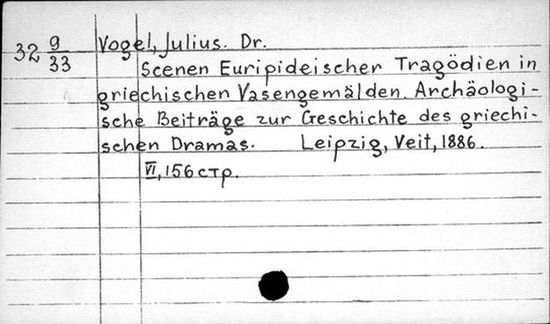 32 9/33 Vogel, Julius. Dr.
Scenen Euripideischer Tragödien in
griechischen Vasengemälden. Archäologi-
sche Beiträge zur Geschichte des griechi-
schen Dramas. Leipzig, Veit, 1886.
VI, 156 стр.